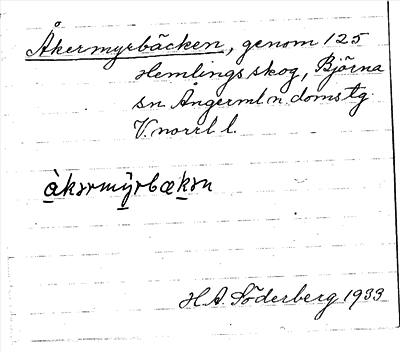 Åkermyrbäcken, genom 125
Hemlings skog, Björna
sn. Ångerml n. domstg
V. norrl l.
àkərmy̆rbækən
H.A. Söderberg 1933